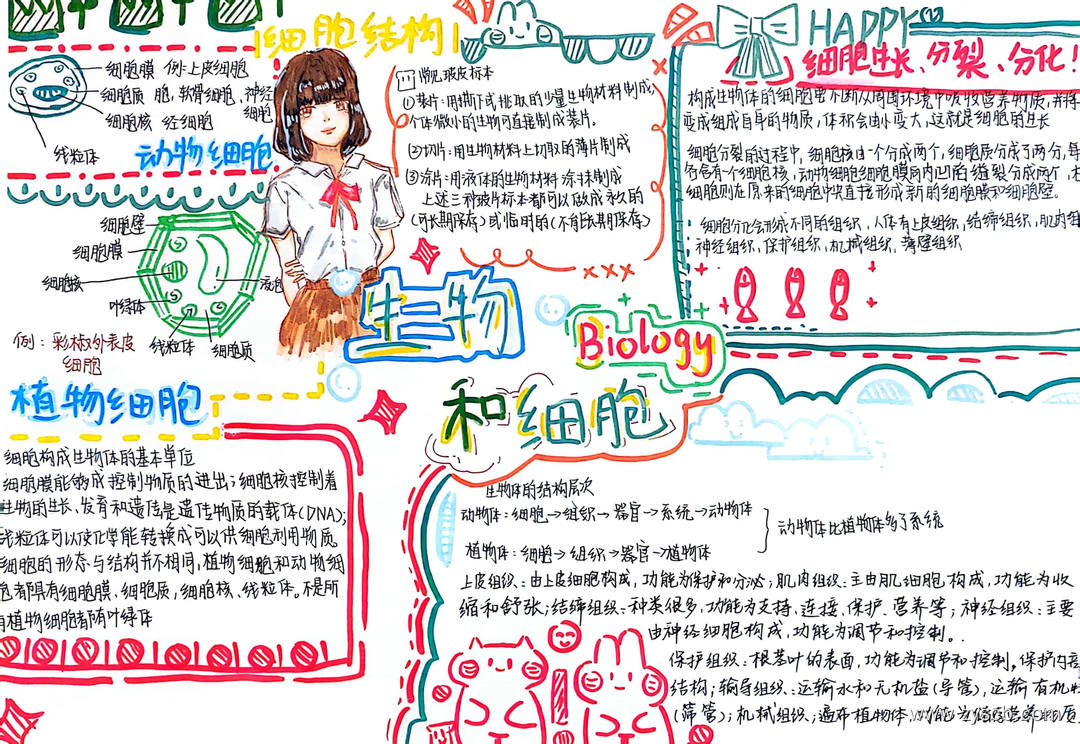 细胞结构
细胞膜 例:上皮细胞
细胞质 胞,软骨细胞、神经
细胞
细胞核 经细胞
线粒体
动物细胞
细胞壁
细胞膜
细胞核
叶绿体
液泡
线粒体 细胞质
例:彩椒外表皮
细胞
植物细胞
细胞构成生物体的基本单位
细胞膜能够成控制物质的进出;细胞核控制着
生物的生长、发育和遗传是遗传物质的载体(DNA);
线粒体可以使化学能转换成可以供细胞利用物质
细胞的形态与结构并不相同,植物细胞和动物细
胞都具有细胞膜,细胞质,细胞核、线粒体,不是所
有植物细胞都有叶绿体
玻皮标本
①薄片:用撕下或挑取的少量生物材料制成,
个体微小的生物可直接制成装片。
②切片:用生物材料上切取的薄片制成
③涂片:用液体的生物材料涂抹制成
上述三种玻片标本都可以做成永久的
(可长期保存)或临时的(不可长期保存)
生物
Biology
和细胞
HAPPY
细胞生长、分裂、分化!
构成生物体的细胞要不断从周围环境中吸收营养物质,并将
变成组成自身的物质,体积会由小变大,这就是细胞的生长
细胞分裂的过程中,细胞核由一个分成两个,细胞质分成了两分,每
份含有一个细胞核,动物细胞细胞膜向内凹的缢裂分成两个,
细胞则在原来的细胞中央直接形成新的细胞膜和细胞壁。
细胞分化经形成不同的组织,人体有上皮组织,结缔组织,肌肉组
神经组织,保护组织,机械组织,薄壁组织
生物体的结构层次
动物体:细胞→组织→器官→系统→动物体
动物体比植物体多了系统
植物体:细胞→组织→器官→植物体
上皮组织:由上皮细胞构成,功能为保护和分泌;肌肉组织:主由肌细胞构成,功能为收
缩和舒张;结缔组织:种类很多,功能为支持、连接、保护、营养等;神经组织:主要
由神经细胞构成,功能为调节和控制。
保护组织:根茎叶的表面,功能为调节和控制,保护内部
结构;输导组织:运输水和无机盐(导管),运输有机物
(筛管);机械组织:遍布植物体,功能为储存营养物质